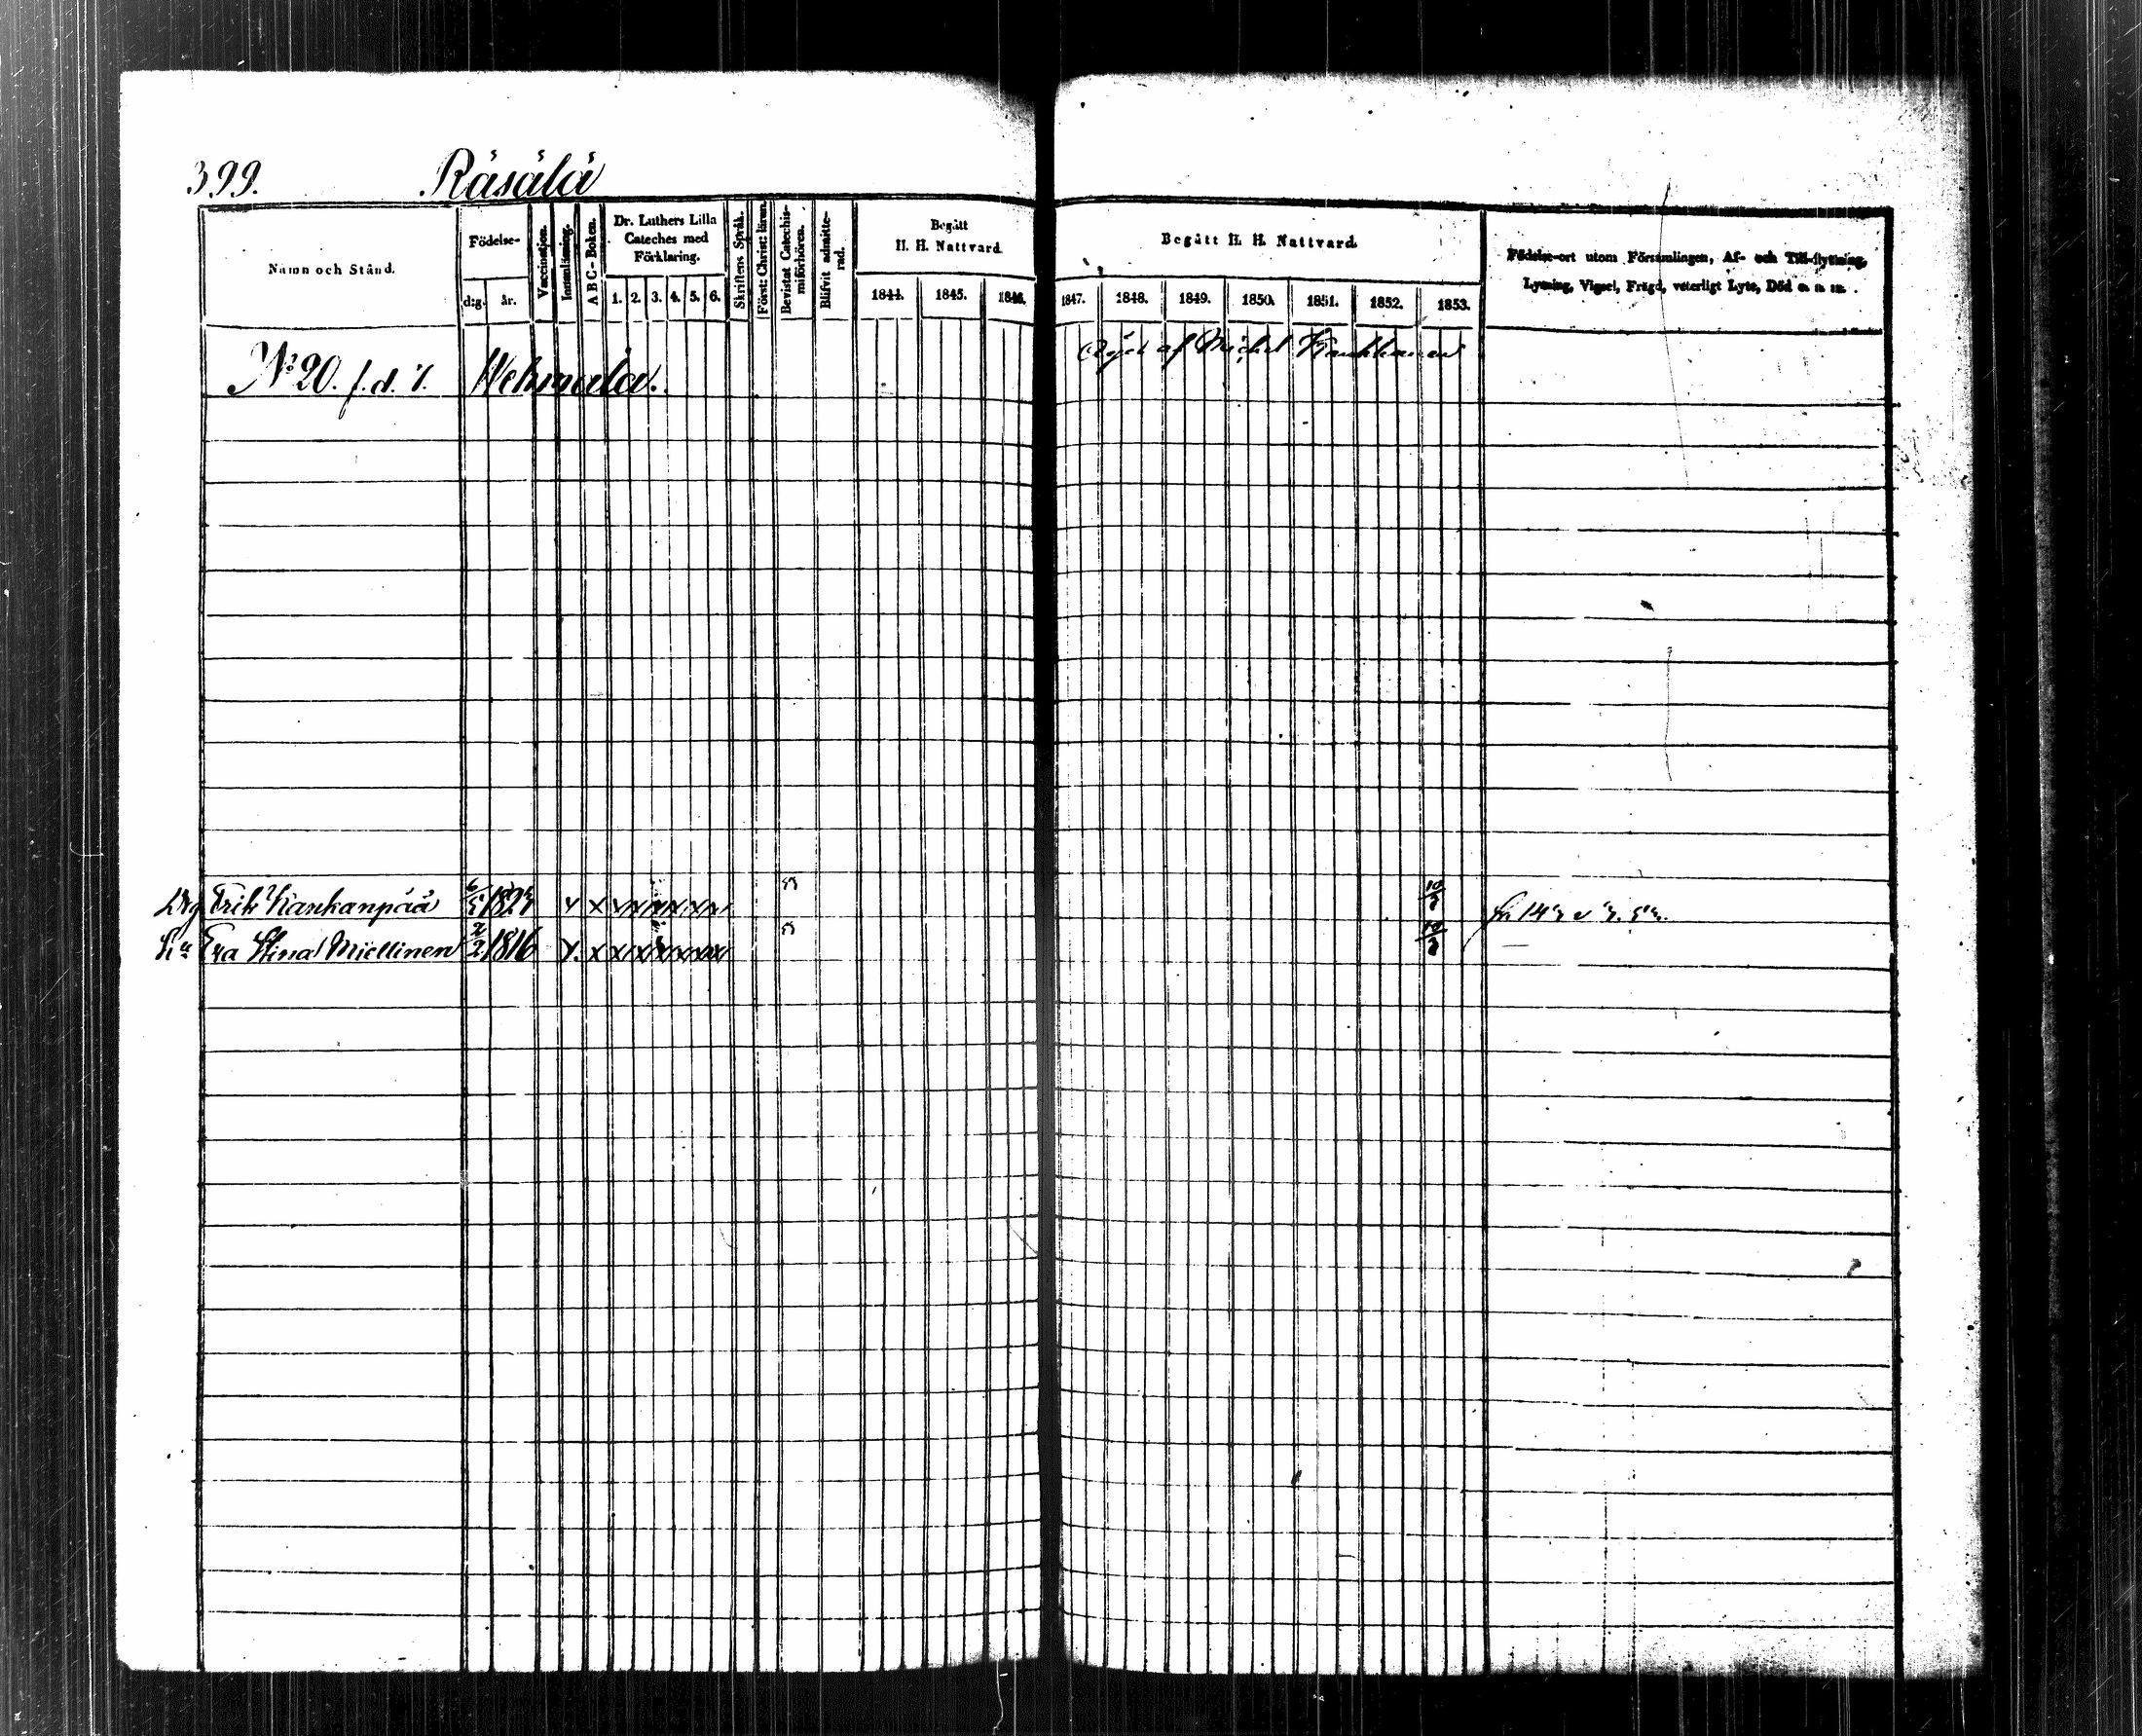 399. Räsälä
Namn och Stånd.
Födelse-
d:g. år.
Vaccination.
Innanläsning.
A B C - Boken.
Dr. Luthers Lilla
Cateches med
Förklaring.
1. 2. 3. 4. 5. 6.
Skriftens Språk.
Först: Christ: läran.
Bevistat Catechis-
miförhören.
Blifvit admitte-
rad.
Begått
H. H. Nattvard
1844. 1845. 1846.
Begått H. H. Nattvard
1847. 1848. 1849. 1850. 1851. 1852. 1853.
Födelse-ort utom Församlingen, Af- och Till-flyttning,
Lysning, Vigsel, Frägd, veterligt Lyte, Död o. s. m.
Äges af Michel
No 20. f. d. 7. Wehmala.
Drg Erik Kankanpää 6/5 182 x x x x x x x x 53 10/7
Hu Eva Stina Miettinen 2/2 1816 x. x x x x x x x 53 10/7 —